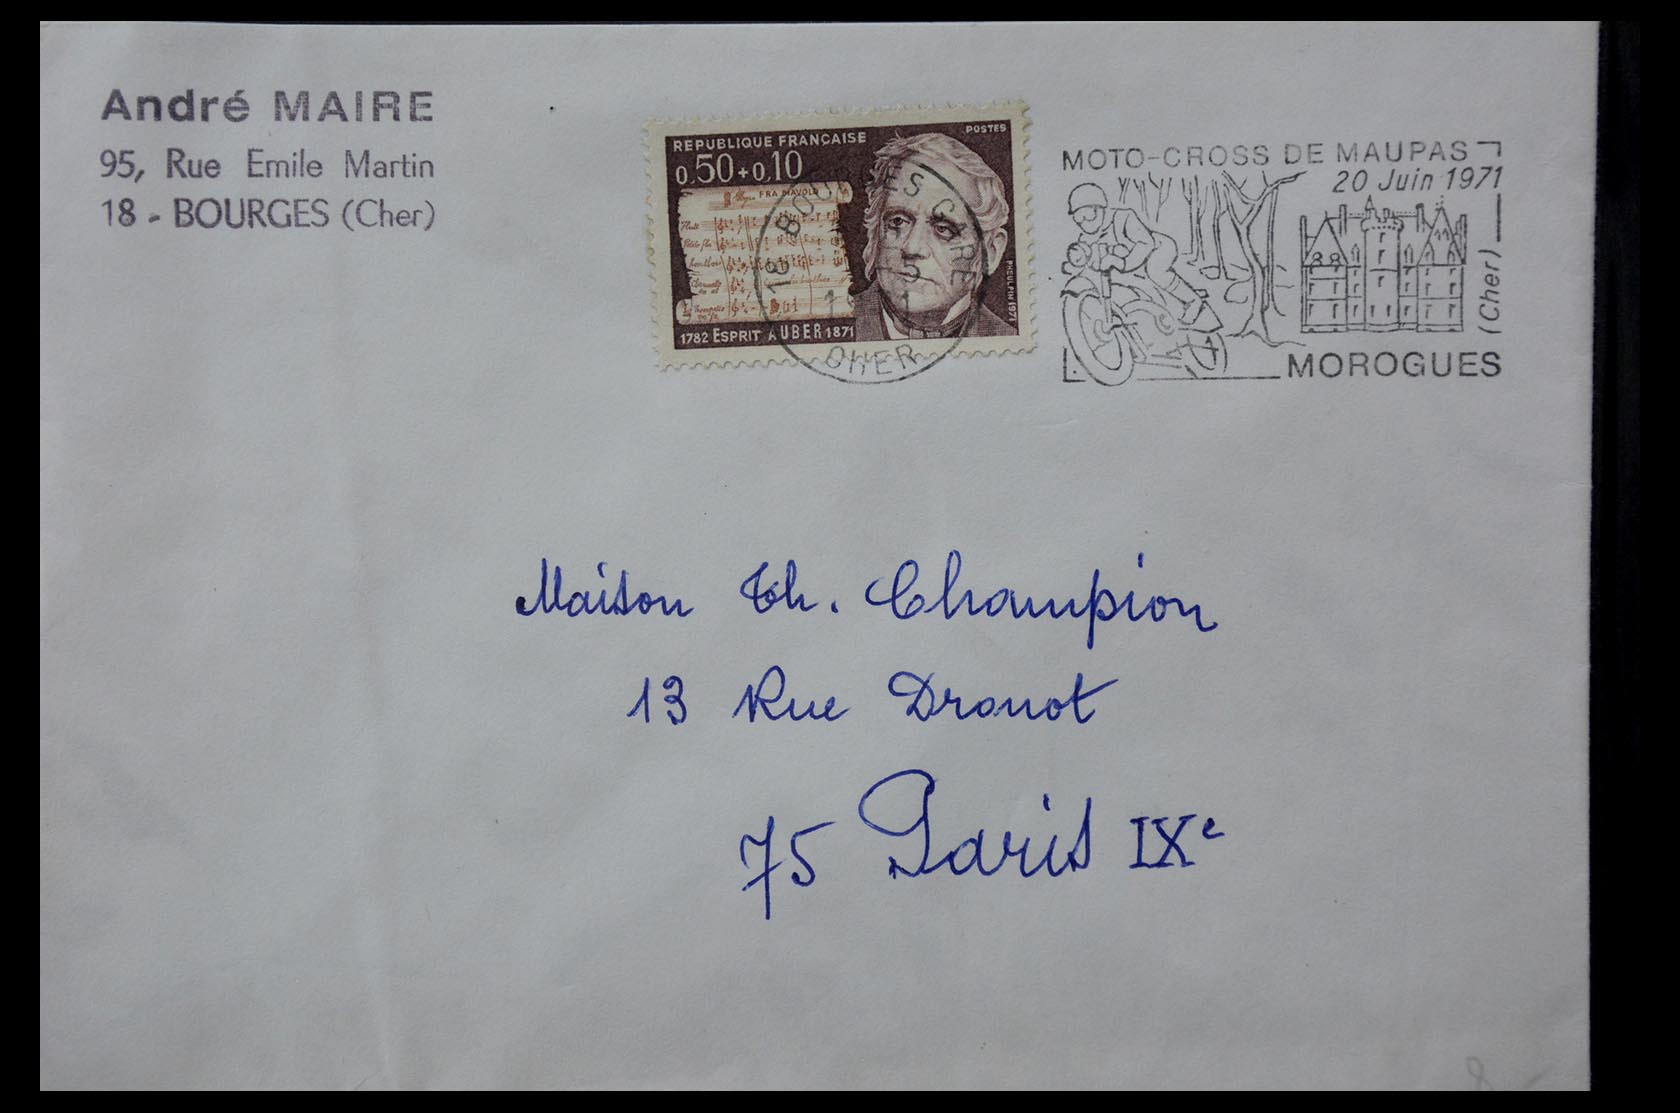 André MAIRE
95, Rue Emile Martin
18 - BOURGES (Cher)
REPUBLIQUE FRANÇAISE
POSTES
0,50+0,10
FRA DIAVOLO
1782 ESPRIT AUBER 1871
PHEULPIN 1971
18 BOURGES GARE
CHER
MOTO-CROSS DE MAUPAS
20 Juin 1971
(Cher)
MOROGUES
Maison Th. Champion
13 Rue Drouot
75 Paris IXe